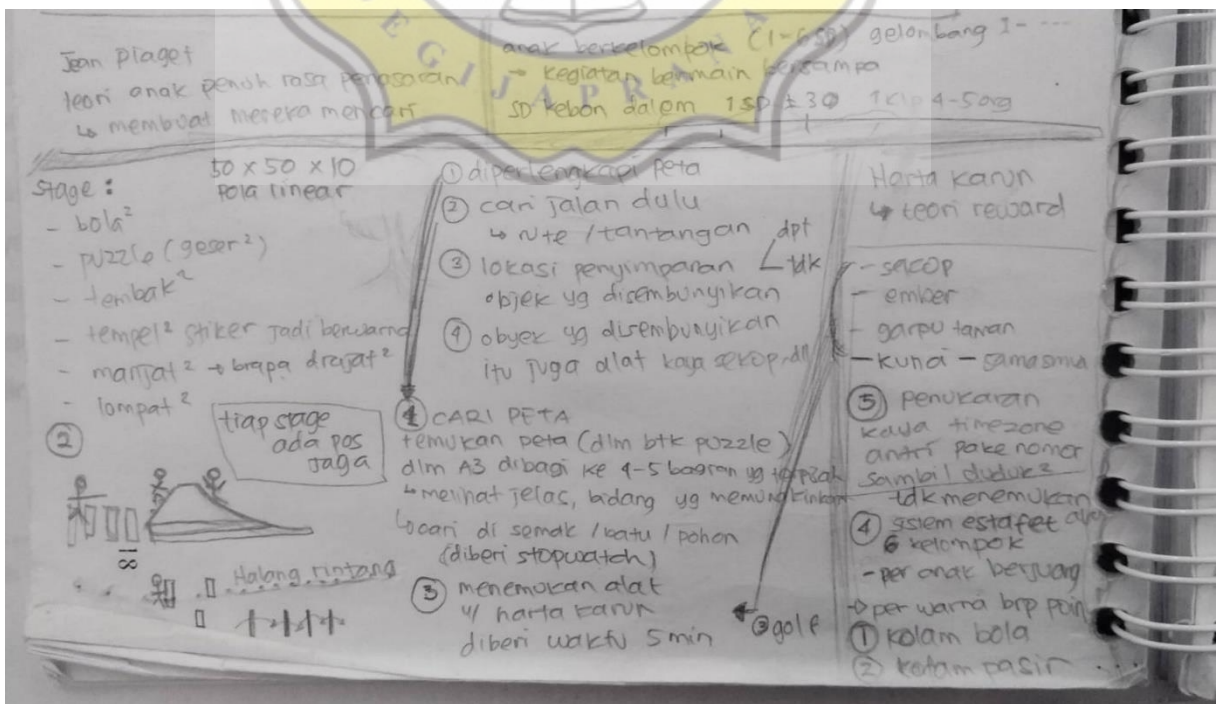 Jean Piaget
teori anak penuh rasa penasaran
↳ membuat mereka mencari
anak berkelompok (1-6SD) gelombang I- ....
→ kegiatan bermain bersampa
SD kebon dalem 1 SD ± 30 1 klp 4-5 org
EGIJAPRANA
stage :
50 x 50 x 10
pola linear
- bola²
- puzzle (geser²)
- tembak²
- tempel² stiker jadi berwarna
- manjat² → brapa drajat²
- lompat²
②
tiap stage
ada pos
jaga
18
Halang rintang
① diperlengkapi peta
② cari jalan dulu
↳ rute / tantangan
③ lokasi penyimpanan
dpt
tdk
objek yg disembunyikan
④ obyek yg disembunyikan
itu juga alat kaya sekop, dll
① CARI PETA
temukan peta (dlm btk puzzle)
dlm A3 dibagi ke 4-5 bagian yg terpisah
↳ melihat jelas, bidang yg memungkinkan
↳ cari di semak / batu / pohon
(diberi stopwatch)
③ menemukan alat
u/ harta karun
diberi waktu 5 min
③ gole
Harta karun
↳ teori reward
- sekop
- ember
- garpu taman
- kunci - sama smua
⑤ penukaran
kaya timezone
antri pake nomor
sambil duduk²
tdk menemukan
④ sistem estafet
6 kelompok
- per anak berjuang
→ per warna brp poin
① kolam bola
② kolam pasir ...